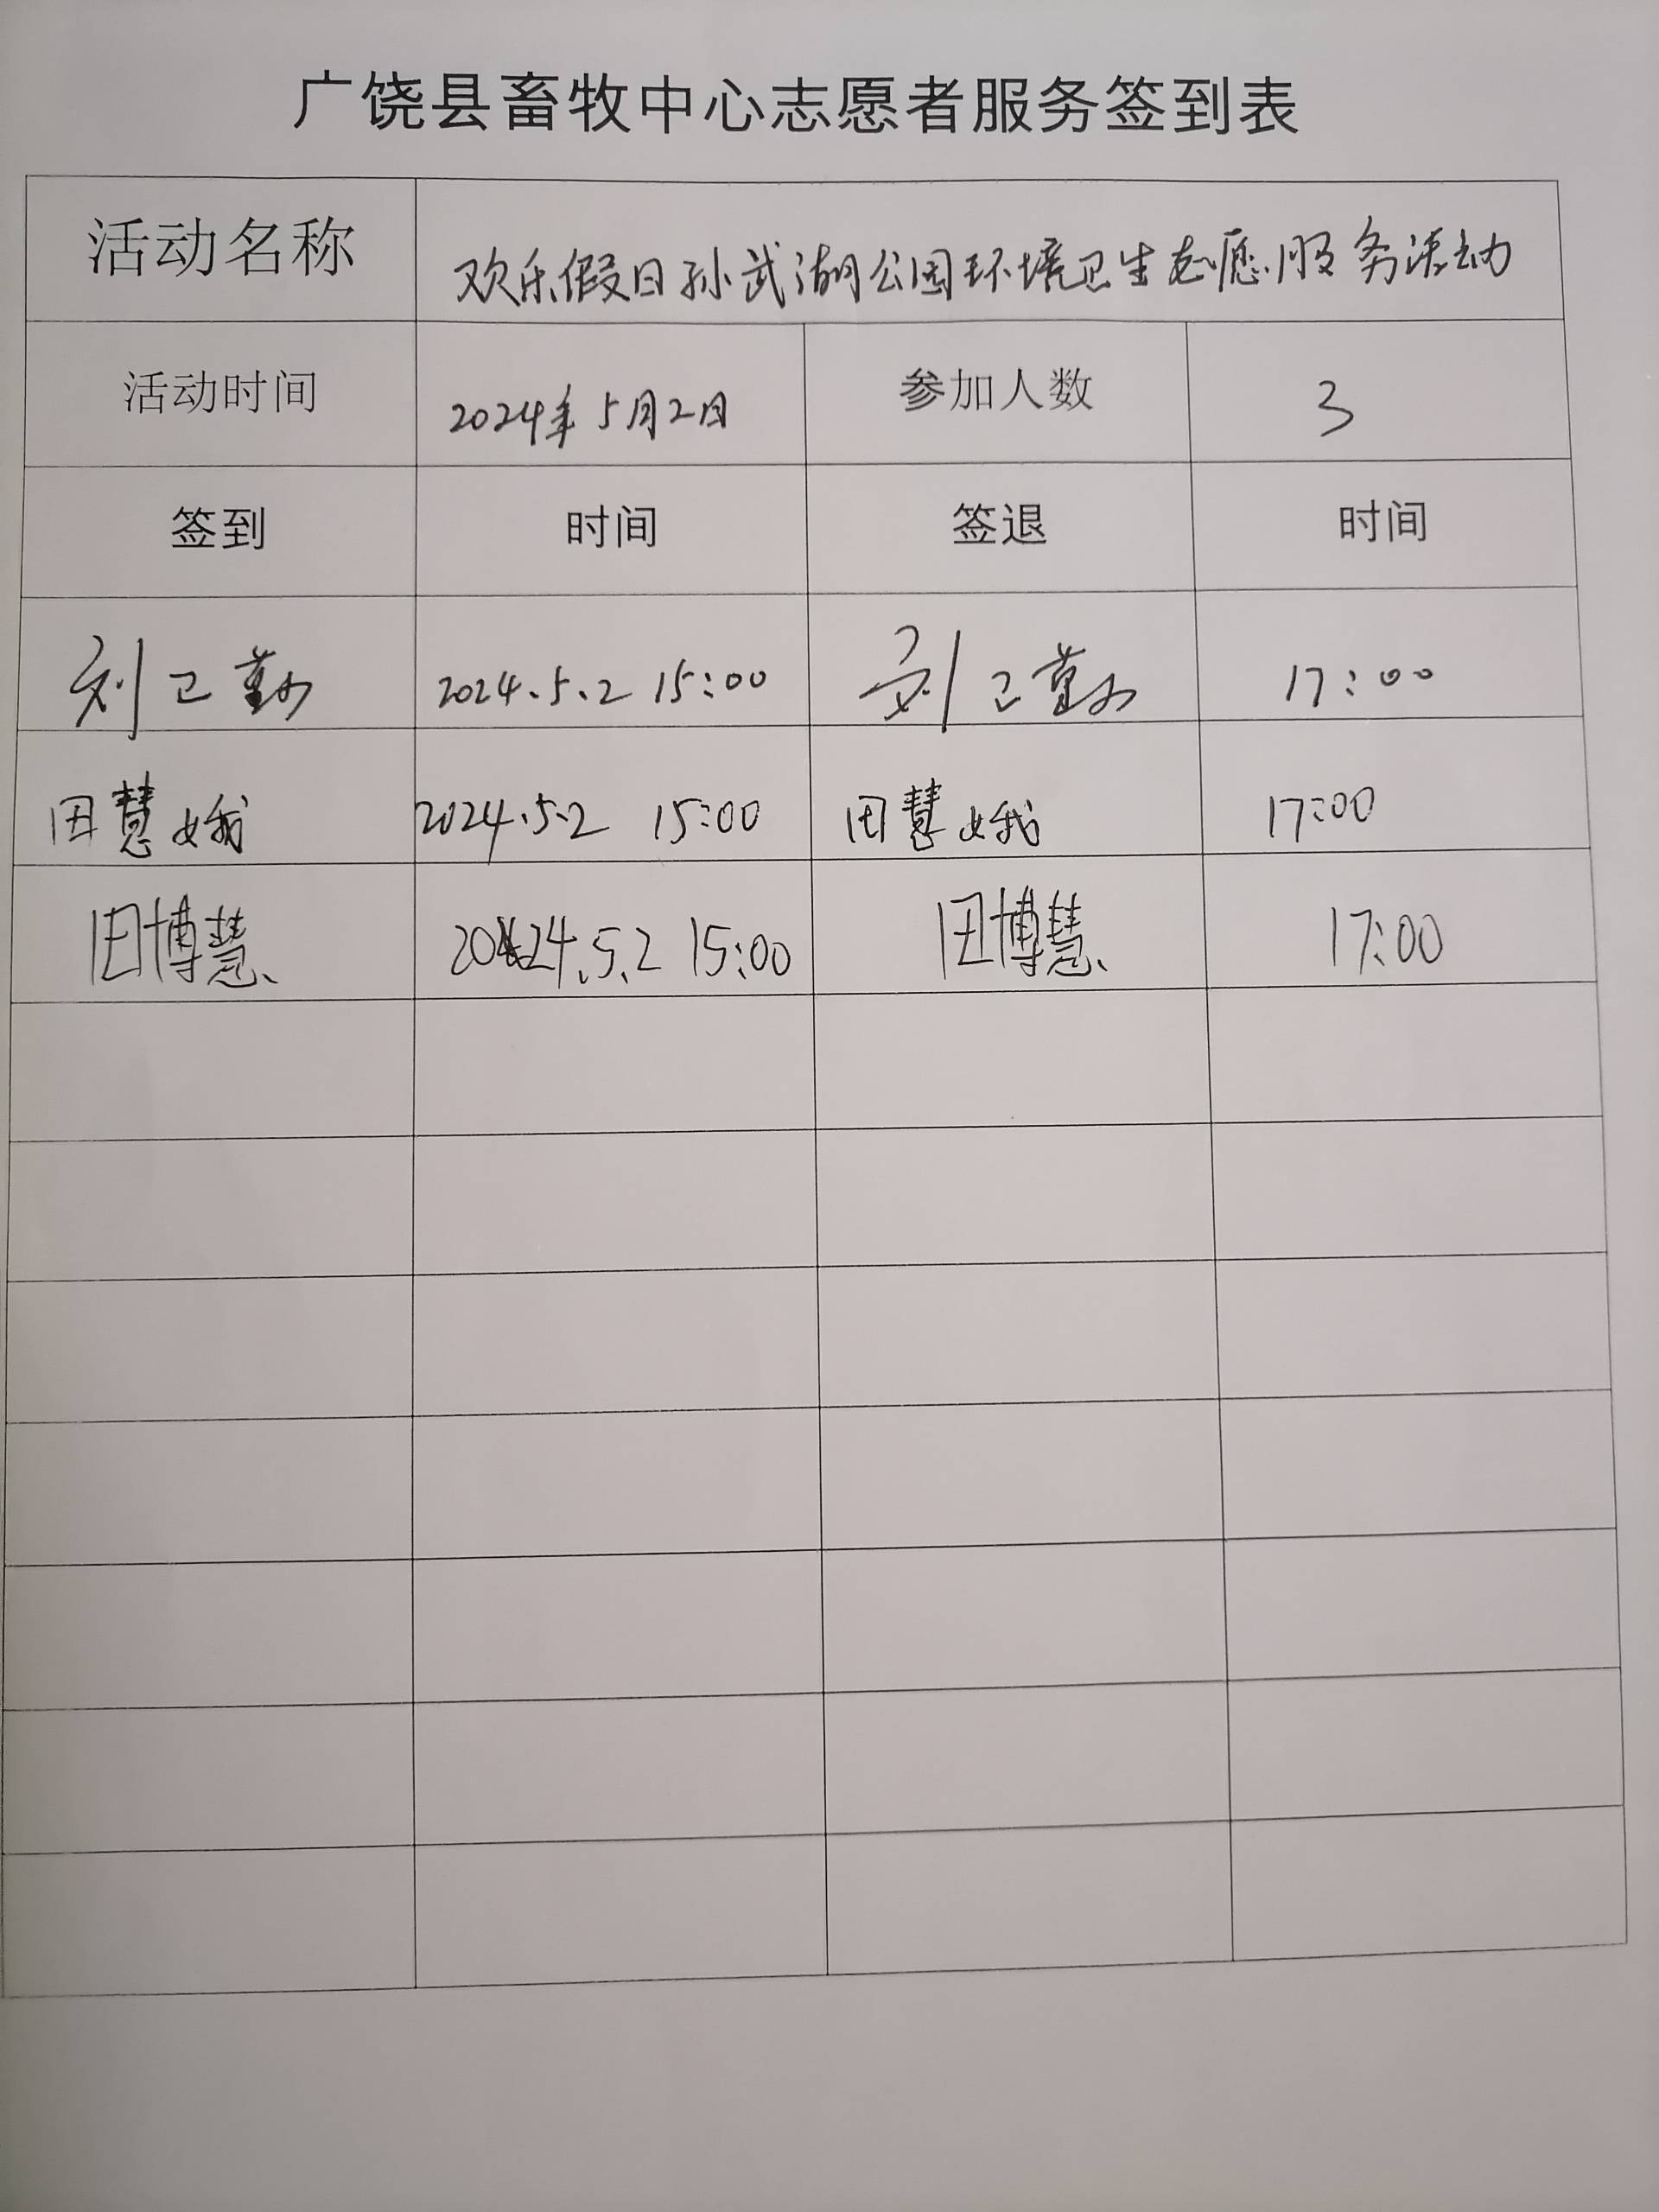 广饶县畜牧中心志愿者服务签到表
活动名称 欢乐假日孙武湖公园环境卫生志愿服务活动
活动时间 2024年5月2日 参加人数 3
签到 时间 签退 时间
刘卫勤 2024.5.2 15:00 刘卫勤 17:00
田慧娥 2024.5.2 15:00 田慧娥 17:00
田博慧 2024.5.2 15:00 田博慧 17:00